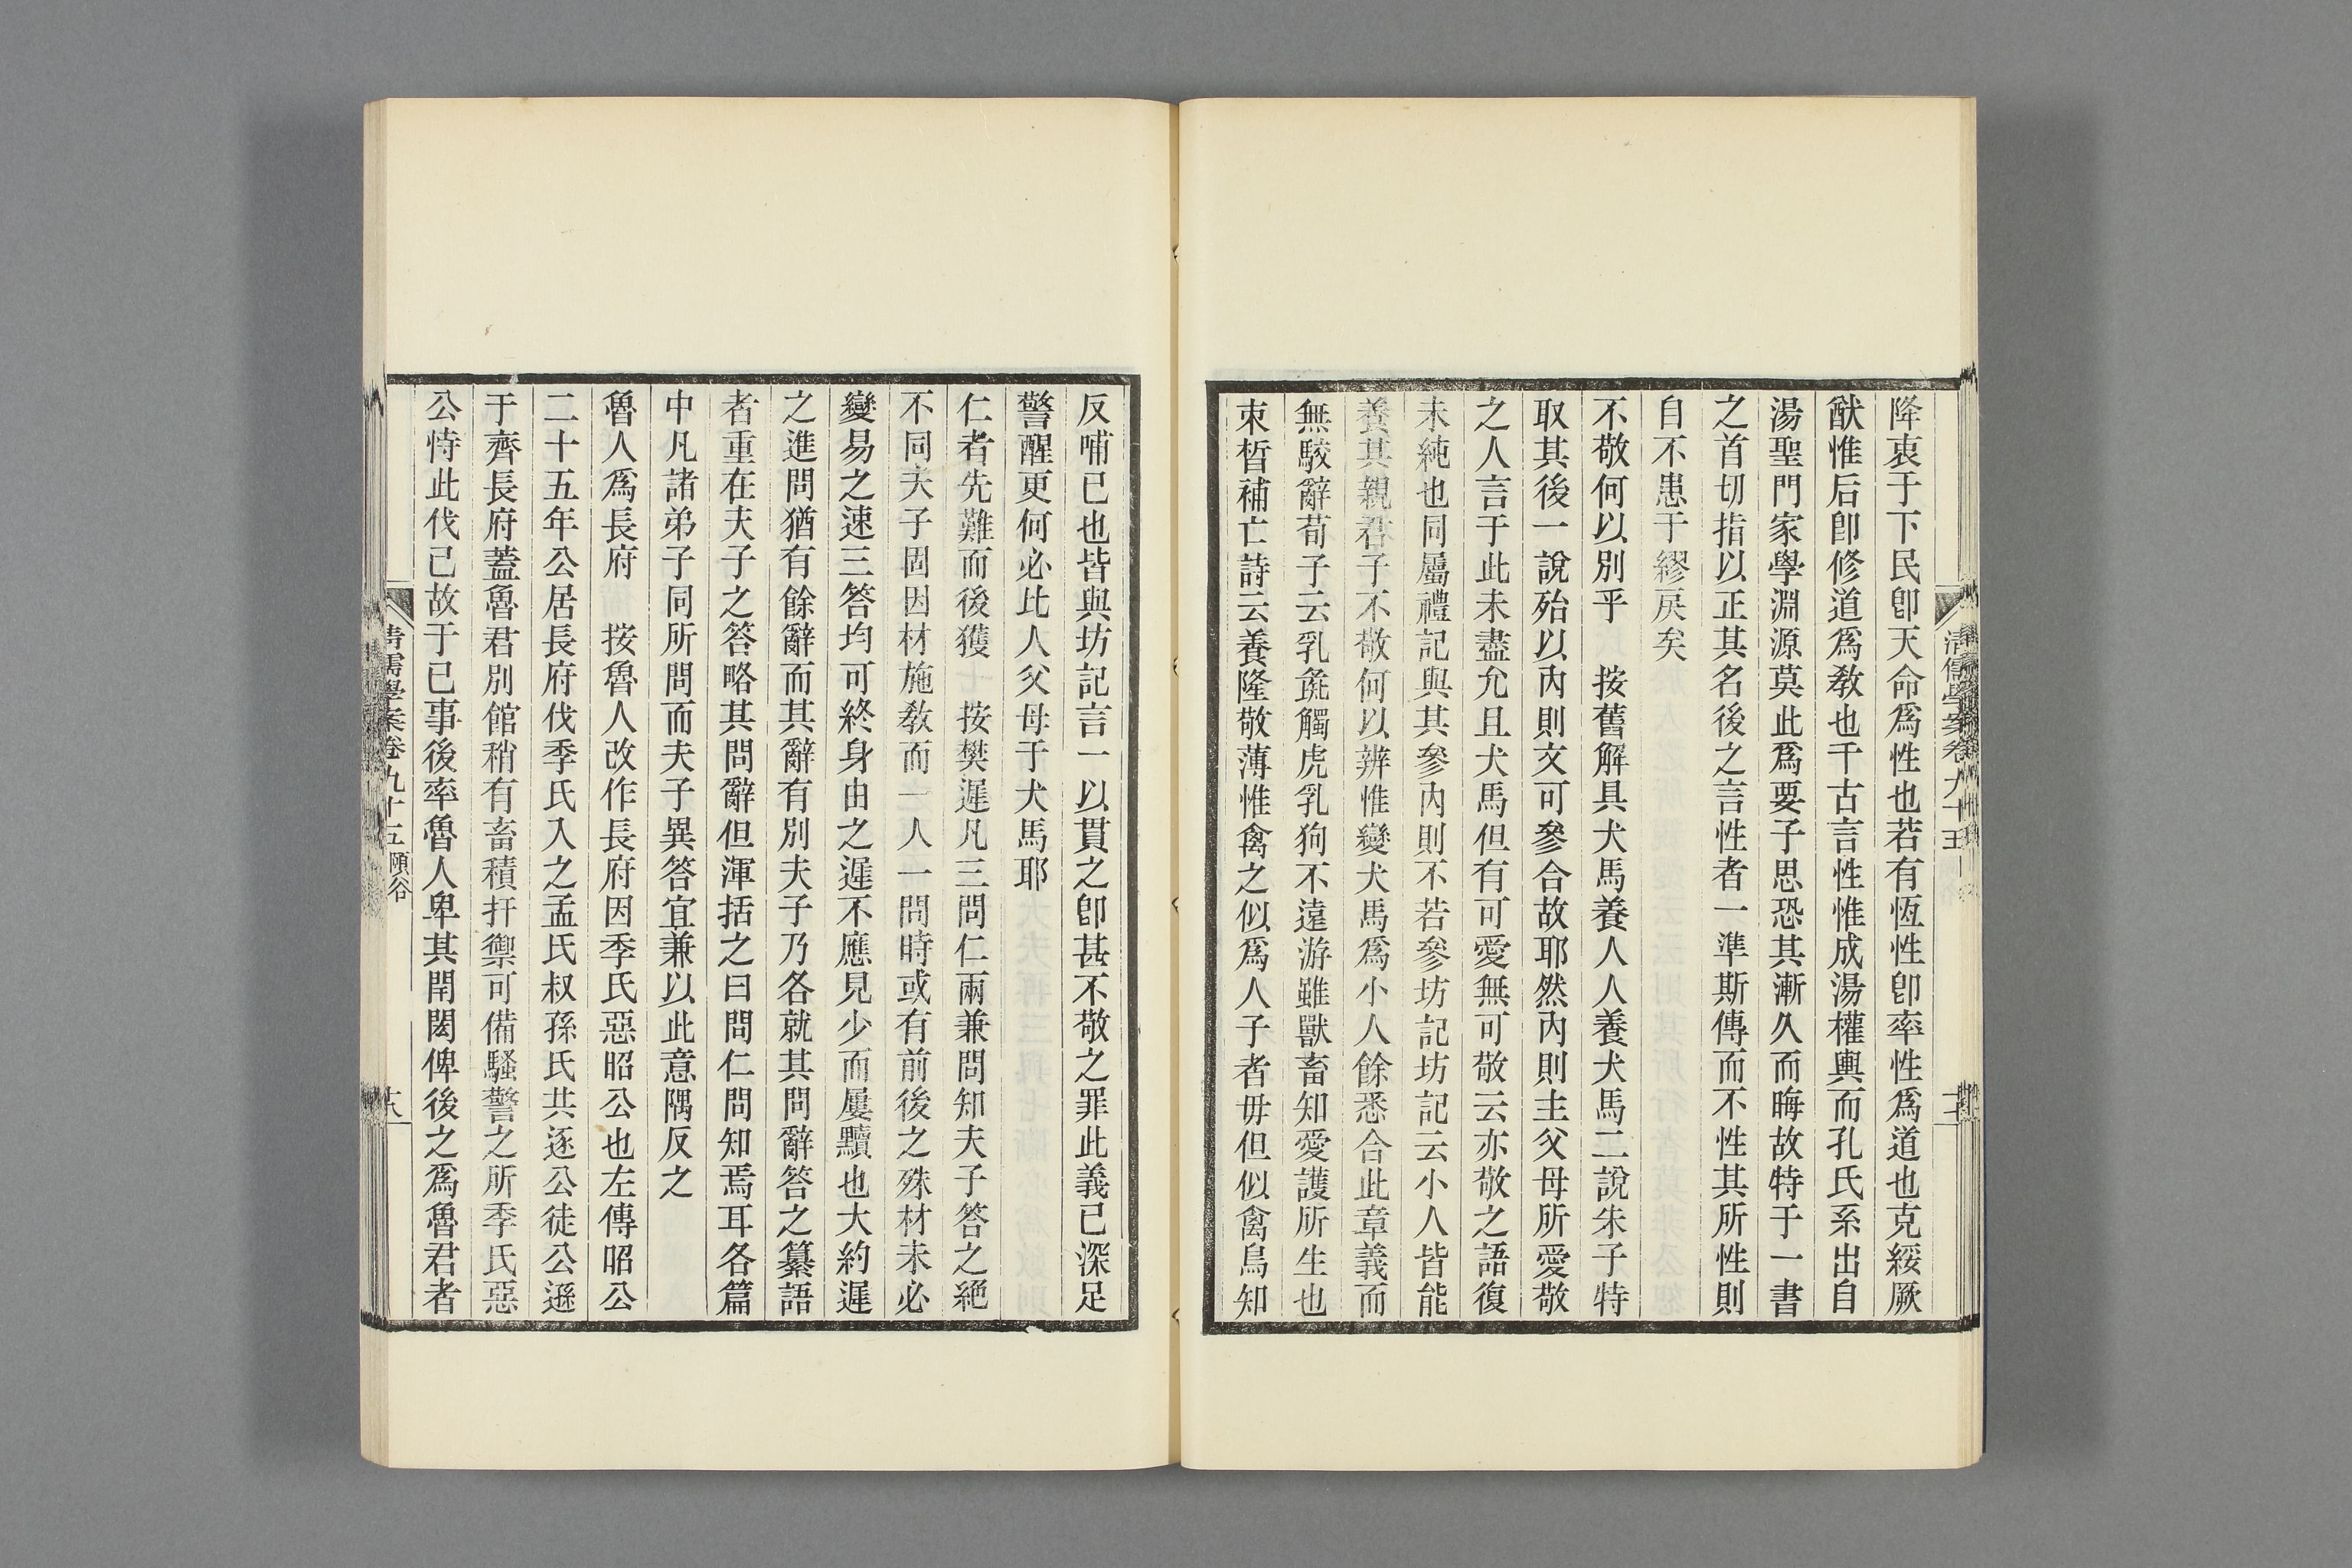 降衷于下民卽天命爲性也若有恆性卽率性爲道也克綏厥
猷惟后卽修道爲敎也千古言性惟成湯權輿而孔氏系出自
湯聖門家學淵源莫此爲要子思恐其漸久而晦故特于一書
之首切指以正其名後之言性者一準斯傳而不性其所性則
自不患于繆戾矣
不敬何以別乎　按舊解具犬馬養人人養犬馬二說朱子特
取其後一說殆以內則文可參合故耶然內則主父母所愛敬
之人言于此未盡允且犬馬但有可愛無可敬云亦敬之語復
未純也同屬禮記與其參內則不若參坊記坊記云小人皆能
養其親君子不敬何以辨惟變犬馬爲小人餘悉合此章義而
無駮辭荀子云乳彘觸虎乳狗不遠游雖獸畜知愛護所生也
束晳補亡詩云養隆敬薄惟禽之似爲人子者毋但似禽鳥知
淸儒學案卷九十五
反哺已也皆與坊記言一以貫之卽甚不敬之罪此義已深足
警醒更何必比人父母于犬馬耶
仁者先難而後獲　按樊遲凡三問仁兩兼問知夫子答之絕
不同夫子固因材施敎而一人一問時或有前後之殊材未必
變易之速三答均可終身由之遲不應見少而屢黷也大約遲
之進問猶有餘辭而其辭有別夫子乃各就其問辭答之纂語
者重在夫子之答略其問辭但渾括之曰問仁問知焉耳各篇
中凡諸弟子同所問而夫子異答宜兼以此意隅反之
魯人爲長府　按魯人改作長府因季氏惡昭公也左傳昭公
二十五年公居長府伐季氏入之孟氏叔孫氏共逐公徒公遜
于齊長府蓋魯君別館稍有畜積扞禦可備騷警之所季氏惡
公恃此伐己故于已事後率魯人卑其閈閎俾後之爲魯君者
淸儒學案卷九十五 頤谷
十八